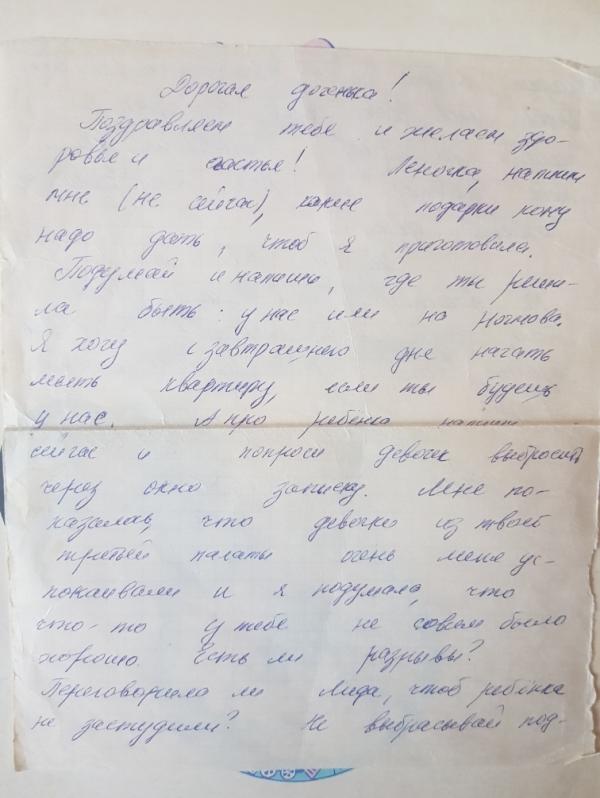 Дорогая доченька!
Поздравляем тебя и желаем здо-
ровья и счастья! Леночка, напиши
мне (не сейчас), какие подарки кому
надо дать, чтоб я приготовила.
Подумай и напиши, где ты реши-
ла быть: у нас или на
Я хочу с завтрашнего дня начать
мыть квартиру, если ты будешь
у нас. А про ребёнка напиши
сейчас и попроси девочек выбросить
через окно записку. Мне по-
казалось, что девочки из твоей
третьей палаты очень меня ус-
покаивали и я подумала, что
что-то у тебя не совсем было
хорошо. Есть ли разрывы?
Переговорила ли Лида, чтоб ребёнка
не застудили? Не выбрасывай под-